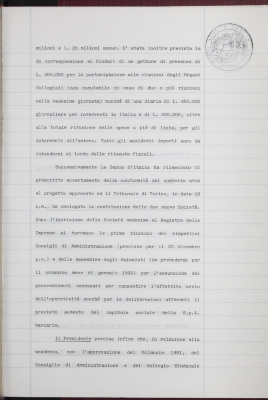 milioni e L. 25 milioni annue. E' stata inoltre prevista la
di corresponsione ai Sindaci di un gettone di presenza di
L. 300.000 per la partecipazione alle riunioni degli Organi
Collegiali (non cumulabile in caso di due o più riunioni
nella medesima giornata) nonché di una diaria di L. 400.000
giornaliere per interventi in Italia e di L. 800.000, oltre
alla totale rifusione delle spese a piè di lista, per gli
interventi all'estero. Tutti gli anzidetti importi sono da
intendersi al lordo delle ritenute fiscali.
Successivamente la Banca d'Italia ha rilasciato il
prescritto accertamento della conformità del suddetto atto
al progetto approvato ed il Tribunale di Torino, in data 23
c.m., ha omologato la costituzione delle due nuove Società.
Dopo l'iscrizione delle Società medesime al Registro delle
Imprese si terranno le prime riunioni dei rispettivi
Consigli di Amministrazione (previste per il 28 dicembre
p.v.) e delle Assemblee degli Azionisti (da prevedersi per
il prossimo mese di gennaio 1992) per l'assunzione dei
provvedimenti necessari per consentire l'effettivo avvio
dell'operatività nonché per le deliberazioni afferenti il
previsto aumento del capitale sociale della S.p.A.
bancaria.
Il Presidente precisa infine che, in relazione alla
scadenza, con l'approvazione del bilancio 1991, del
Consiglio di Amministrazione e del Collegio Sindacale